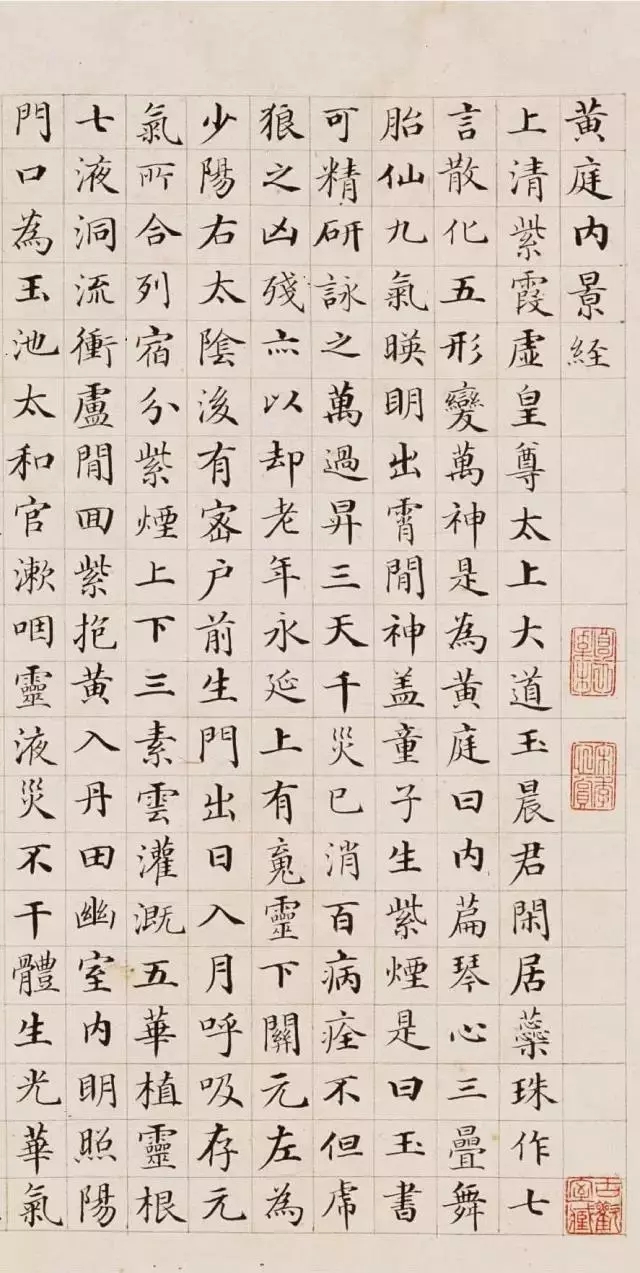 黃庭內景経
上清紫霞虛皇尊太上大道玉晨君閑居蘂珠作七
言散化五形變萬神是為黃庭曰內萹琴心三疊舞
胎仙九氣暎明出霄閒神盖童子生紫煙是曰玉書
可精研詠之萬過昇三天千災已消百病痊不但虎
狼之凶殘亦以却老年永延上有䰟靈下關元左為
少陽右太陰後有密户前生門出日入月呼吸存元
氣所合列宿分紫煙上下三素雲灌溉五華植靈根
七液洞流衝盧閒回紫抱黃入丹田幽室內明照陽
門口為玉池太和官漱咽靈液災不干體生光華氣